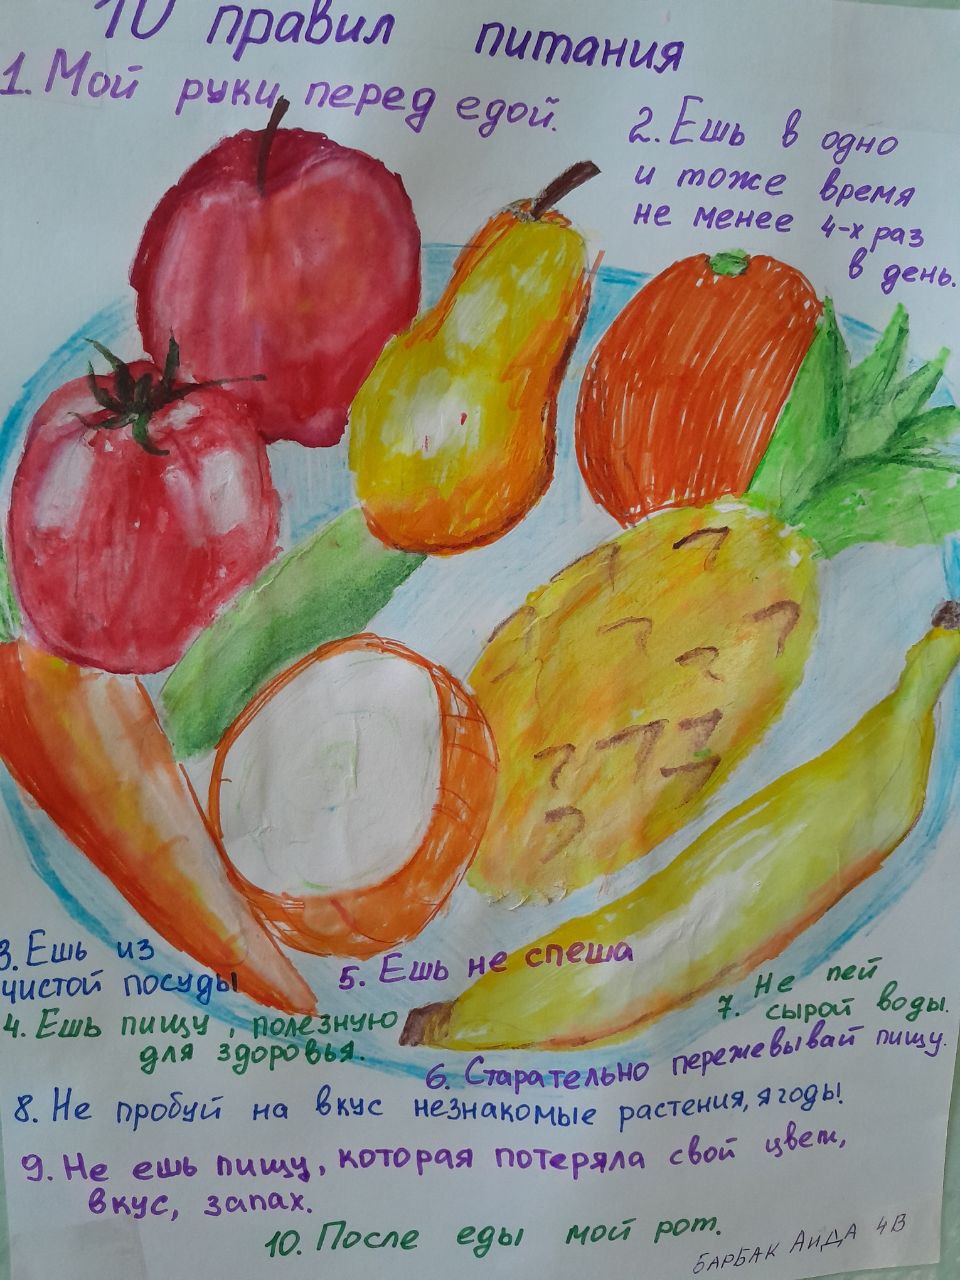 10 правил питания
1. Мой руки перед едой.
2. Ешь в одно
и тоже время
не менее 4-х раз
в день.
3. Ешь из
чистой посуды
4. Ешь пищу, полезную
для здоровья.
5. Ешь не спеша
6. Старательно пережевывай пищу.
7. Не пей
сырой воды.
8. Не пробуй на вкус незнакомые растения, ягоды!
9. Не ешь пищу, которая потеряла свой цвет,
вкус, запах.
10. После еды мой рот.
БАРБАК АИДА 4В